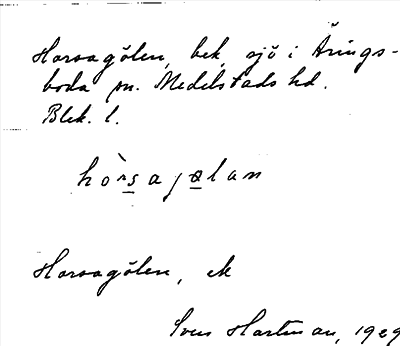 Horsagölen, bek, sjö i Årings-
boda sn. Medelstads hd.
Blek. l.
hòrsajølan
Horsagölen, ek
Sven Hartman, 1929